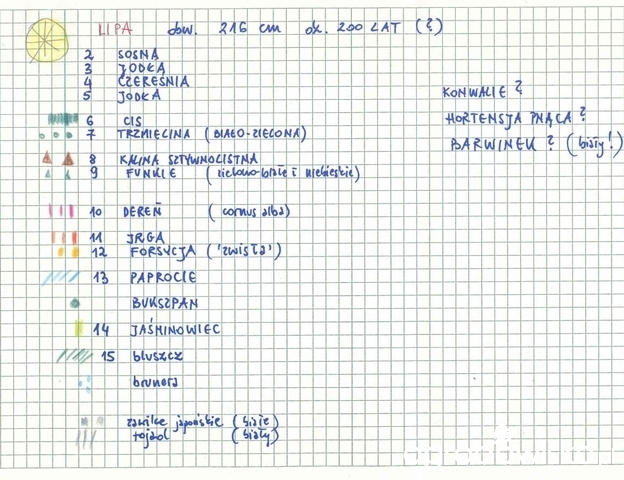 LIPA obw. 216 cm ok. 200 LAT (?)
2 SOSNA
3 JODŁA
4 CZEREŚNIA
5 JODŁA
KONWALIE ?
6 CIS
HORTENSJA PNĄCA ?
7 TRZMIELINA (BIAŁO-ZIELONA)
BARWINEK ? (biały!)
8 KALINA SZTYWNOLISTNA
9 FUNKIE (zielono-białe i niebieskie)
10 DEREŃ (cornus alba)
11 IRGA
12 FORSYCJA ('zwisła')
13 PAPROCIE
BUKSZPAN
14 JAŚMINOWIEC
15 bluszcz
brunera
zawilce japońskie (białe)
tojad (biały)